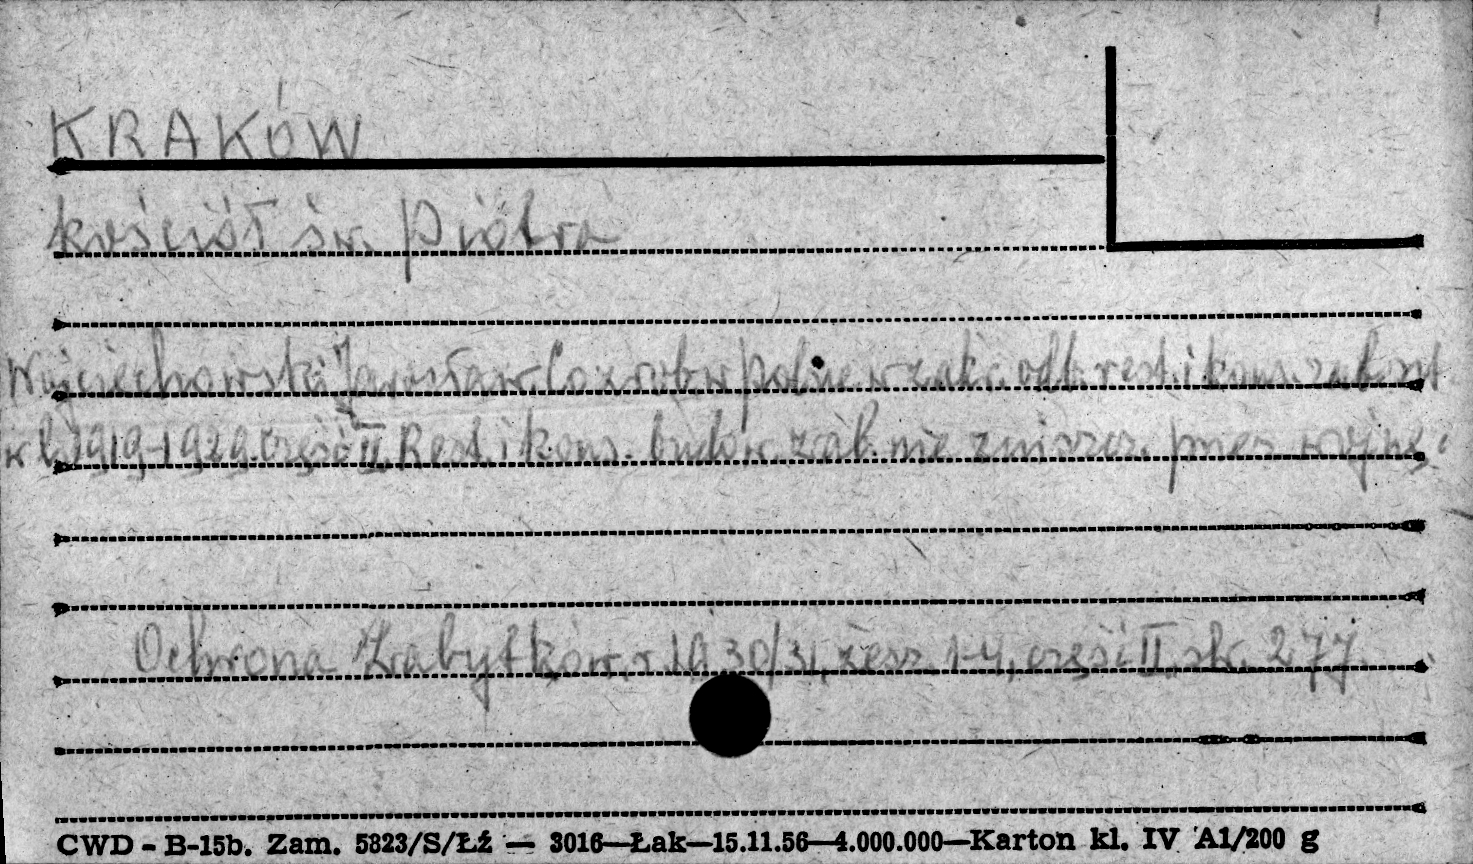 KRAKÓW
kościół św. Piotra
Wojciechowski Jarosław. Co zrobiono w Polsce w zakr. odb. rest. i kons. zabyt.
w l. 1919-1929. Część II Rest. i kons. budow. zab. nie zniszcz. przez wojnę.
Ochrona Zabytków r. 1930/31, zesz. 1-4, część II, str. 277.
CWD - B-15b. Zam. 5823/S/Łź — 3016—Łak—15.11.56—4.000.000—Karton kl. IV A1/200 g